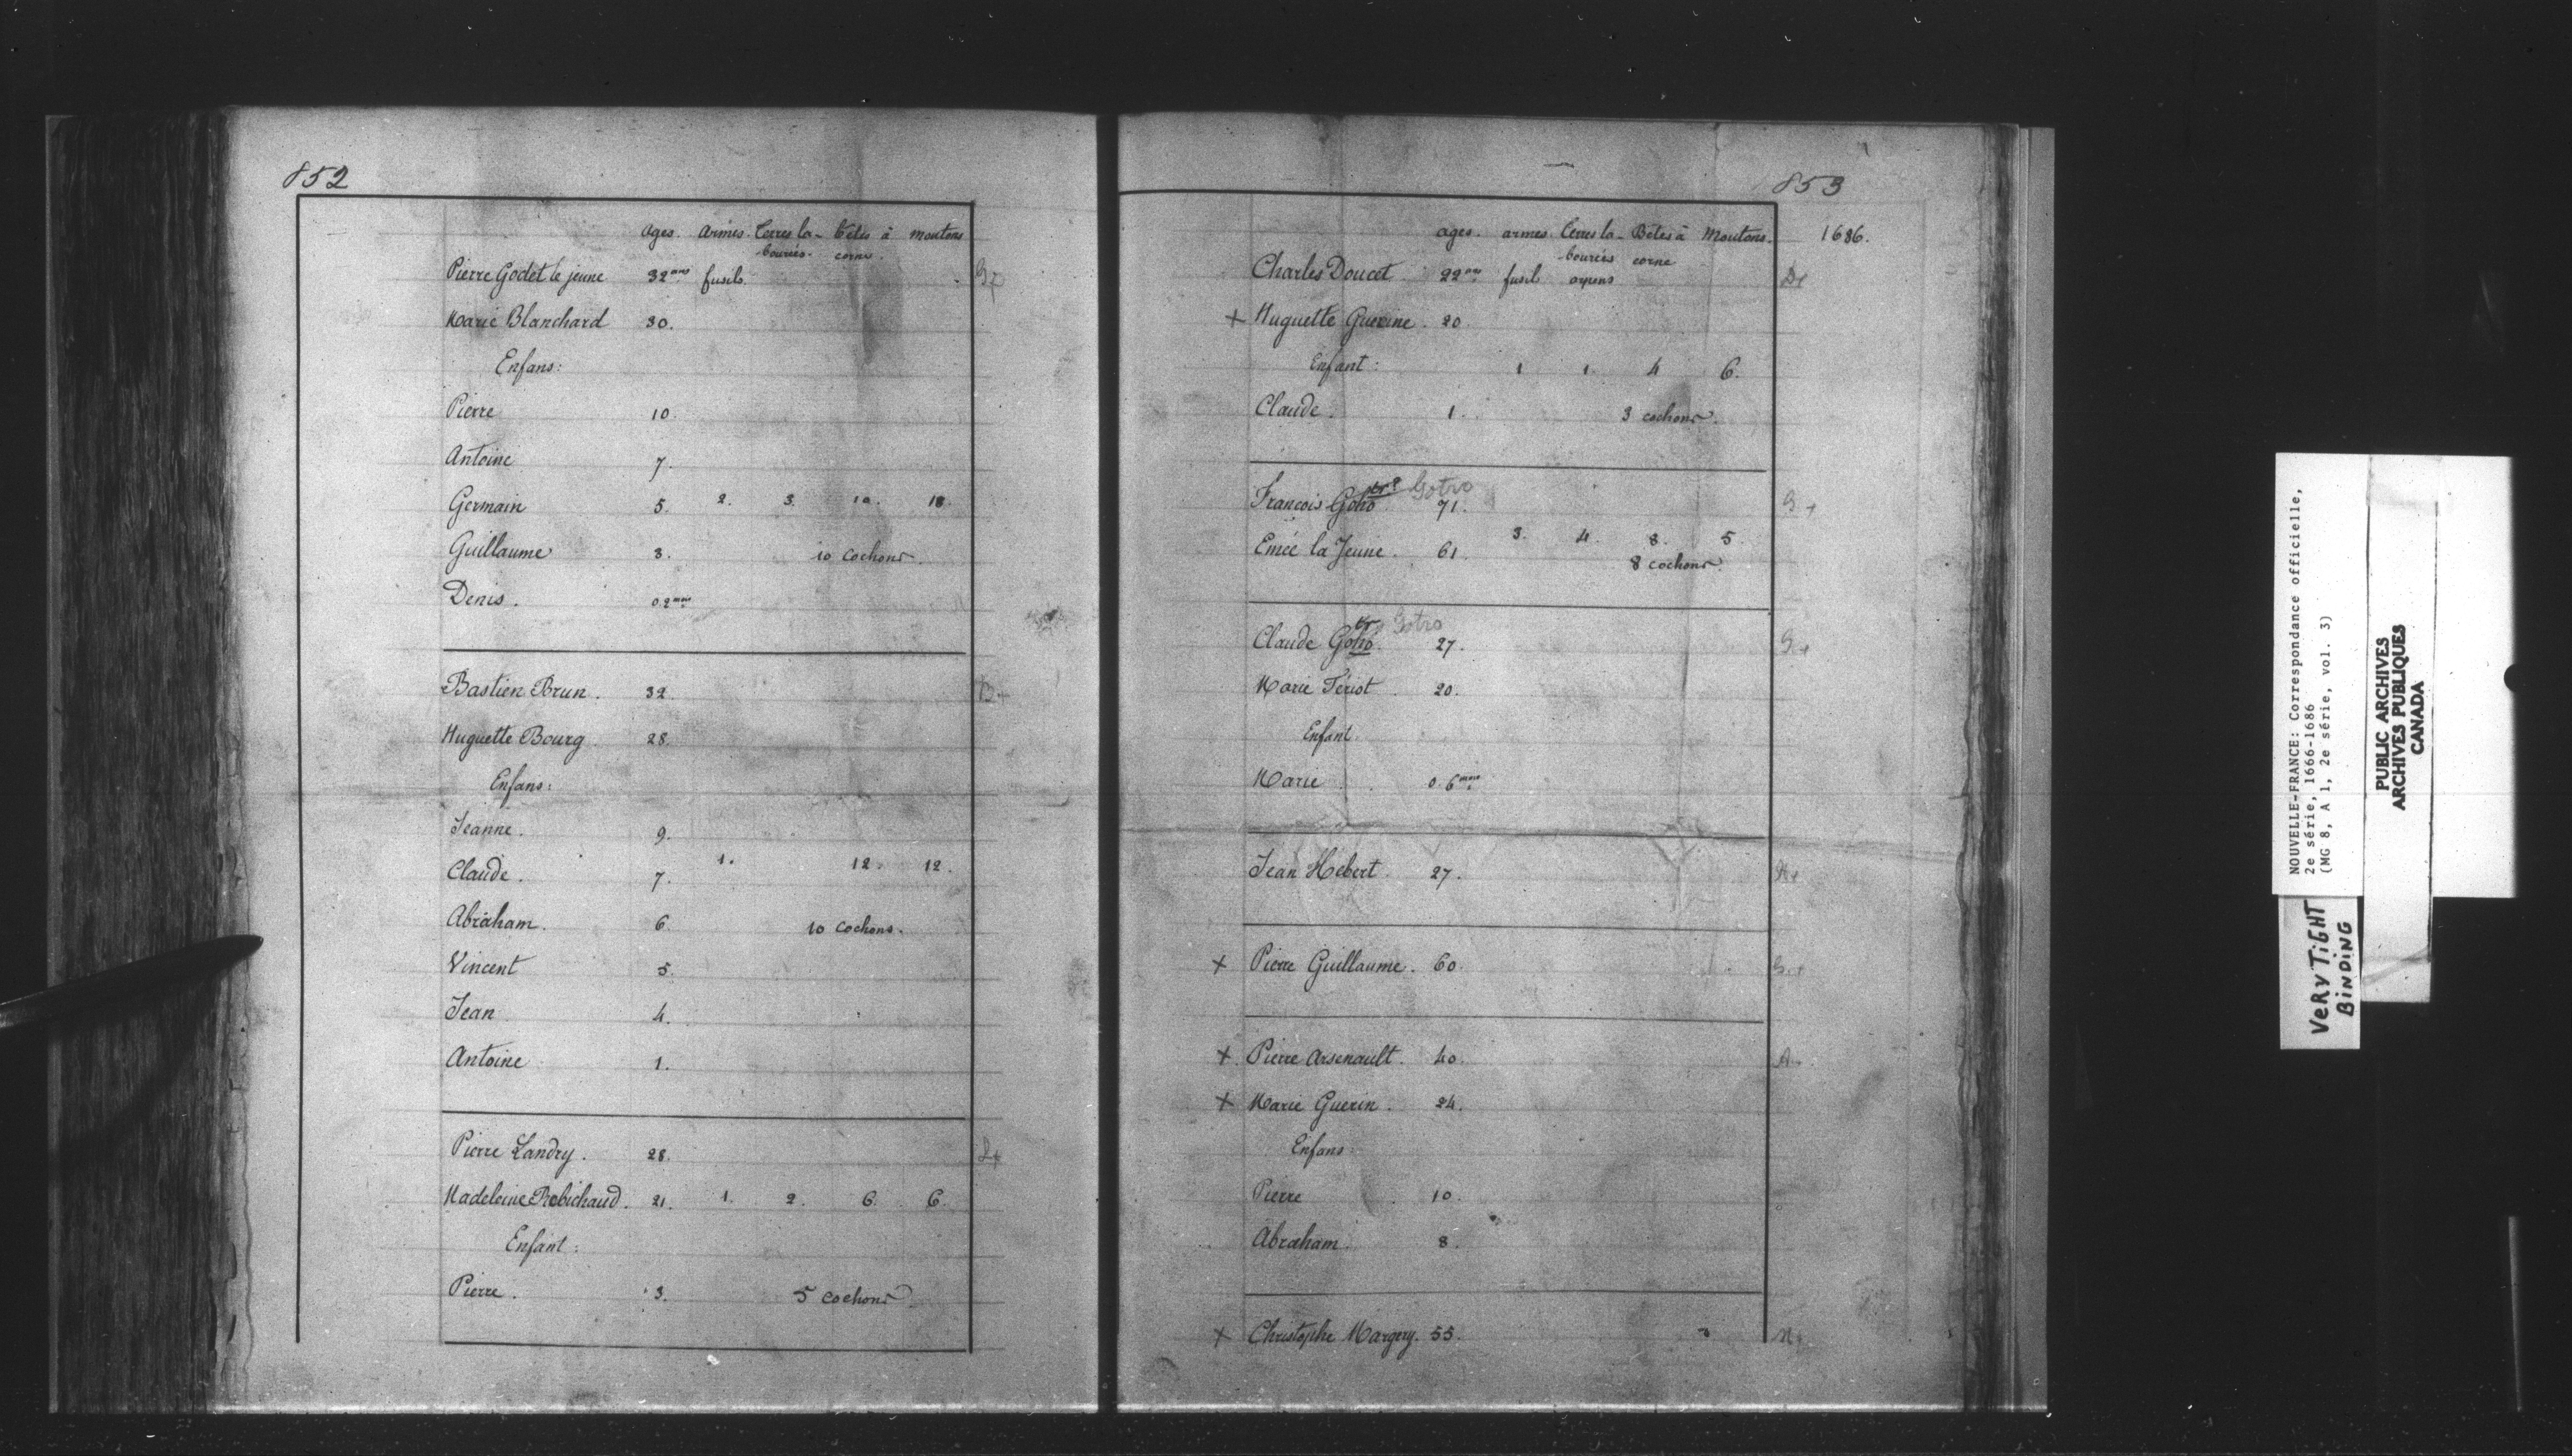 852
ages. armes. Terres la- bêtes à moutons
bourées- corne.
Pierre Godet le jeune 32 ans fusils.
Marie Blanchard 30.
Enfans:
Pierre 10.
Antoine 7.
Germain 5. 2. 3. 10. 18.
Guillaume 3. 10 cochons.
Denis. 0.2 mois
Bastien Brun. 32.
Huguette Bourg 28.
Enfans:
Jeanne. 9.
Claude. 7. 1. 12. 12.
Abraham. 6. 10 cochons.
Vincent 5.
Jean 4.
Antoine 1.
Pierre Landry. 28.
Madeleine Robichaud. 21. 1. 2. 6. 6.
Enfant:
Pierre. 3. 5 cochons
853
ages. armes. Terres la- Bêtes à Moutons. 1686.
bourées corne
Charles Doucet 22 ans fusil arpens
+ Huguette Guerine. 20.
Enfant: 1 1. 4 6.
Claude. 1. 3 cochons.
François Goho tr? Gotro 71.
Emée la Jeune. 61. 3. 4. 8. 5.
8 cochons.
Claude Goho tr Gotro 27.
Marie Tériot 20.
Enfant.
Marie 0.6 mois
Jean Hébert 27.
+ Pierre Guillaume. 60.
+ Pierre Arsenault. 40.
+ Marie Guerin. 24.
Enfans
Pierre 10.
Abraham. 8.
+ Christophe Margery. 55.
NOUVELLE-FRANCE: Correspondance officielle,
2e série, 1666-1686
(MG 8, A 1, 2e série, vol. 3)
PUBLIC ARCHIVES
ARCHIVES PUBLIQUES
CANADA
VERY TIGHT
BINDING